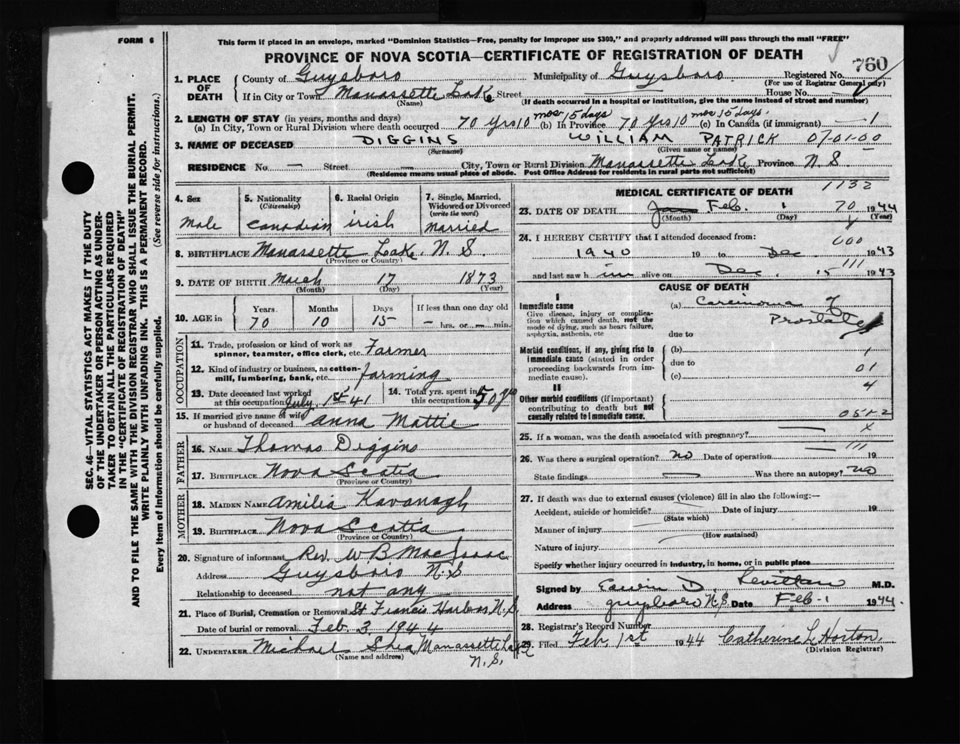 FORM 6
This form if placed in an envelope, marked "Dominion Statistics—Free, penalty for improper use $300," and properly addressed will pass through the mail "FREE"
PROVINCE OF NOVA SCOTIA—CERTIFICATE OF REGISTRATION OF DEATH
760
1. PLACE OF DEATH
County of Guysboro Municipality of Guysboro Registered No.
(For use of Registrar General only)
If in City or Town Manassette Lake Street House No.
(Name) (If death occurred in a hospital or institution, give the name instead of street and number)
2. LENGTH OF STAY (in years, months and days)
(a) In City, Town or Rural Division where death occurred 70 yrs 10 mos 15 days (b) In Province 70 yrs 10 mos 15 days (c) In Canada (if immigrant) — 1
3. NAME OF DECEASED DIGGINS WILLIAM PATRICK 07-01-00
(Surname) (Given name or names)
RESIDENCE No. — Street — City, Town or Rural Division Manassette Lake Province N.S.
(Residence means usual place of abode. Post Office Address for residents in rural parts not sufficient)
4. Sex
Male
5. Nationality
(Citizenship)
Canadian
6. Racial Origin
irish
7. Single, Married, Widowed or Divorced
(write the word)
Married
8. BIRTHPLACE Manassette Lake. N.S.
(Province or Country)
9. DATE OF BIRTH March 17 1873
(Month) (Day) (Year)
10. AGE in
Years Months Days If less than one day old
70 10 15 — hrs. or — min.
OCCUPATION
11. Trade, profession or kind of work as spinner, teamster, office clerk, etc. Farmer
12. Kind of industry or business, as cotton-mill, lumbering, bank, etc. farming
13. Date deceased last worked at this occupation July 1st 41
14. Total yrs. spent in this occupation. 50 yrs
15. If married give name of wife or husband of deceased Anna Mattie
FATHER
16. NAME Thomas Diggins
17. BIRTHPLACE Nova Scotia
(Province or Country)
MOTHER
18. MAIDEN NAME Amilia Kavanagh
19. BIRTHPLACE Nova Scotia
(Province or Country)
20. Signature of informant Rev. W B MacIsaac
Address Guysboro N.S
Relationship to deceased not any
21. Place of Burial, Cremation or Removal St Francis Harbor N.S.
Date of burial or removal Feb. 3 1944
22. UNDERTAKER Michael Shea Manassette Lake N.S.
(Name and address)
MEDICAL CERTIFICATE OF DEATH
1132
23. DATE OF DEATH Feb. 1 70 1944
(Month) (Day) (Year)
24. I HEREBY CERTIFY that I attended deceased from: 600
1940 19 to Dec 1943
and last saw him alive on Dec. 15 111 1943
CAUSE OF DEATH
I
Immediate cause
Give disease, injury or complication which caused death, not the mode of dying, such as heart failure, asphyxia, asthenia, etc
(a) Carcinoma of Prostate
due to
Morbid conditions, if any, giving rise to immediate cause (stated in order proceeding backwards from immediate cause).
(b) 1
due to 01
(c) 4
II
Other morbid conditions (if important) contributing to death but not causally related to immediate cause.
051-2
25. If a woman, was the death associated with pregnancy? x
26. Was there a surgical operation? no Date of operation 111 19
State findings — Was there an autopsy? no
27. If death was due to external causes (violence) fill in also the following:—
Accident, suicide or homicide? Date of injury 19
(State which)
Manner of injury
(How sustained)
Nature of injury
Specify whether injury occurred in industry, in home, or in public place
Signed by Edwin D. Levitan M.D.
Address guysboro N.S. Date Feb-1 1944.
28. Registrar's Record Number
29. Filed Feb. 1st 1944 Catherine L Horton
(Division Registrar)
SEC. 46—VITAL STATISTICS ACT MAKES IT THE DUTY
OF THE UNDERTAKER OR PERSON ACTING AS UNDER-
TAKER TO OBTAIN ALL THE PARTICULARS REQUIRED
IN THE "CERTIFICATE OF REGISTRATION OF DEATH"
AND TO FILE THE SAME WITH THE DIVISION REGISTRAR WHO SHALL ISSUE THE BURIAL PERMIT.
WRITE PLAINLY WITH UNFADING INK. THIS IS A PERMANENT RECORD.
Every item of Information should be carefully supplied. (See reverse side for instructions.)